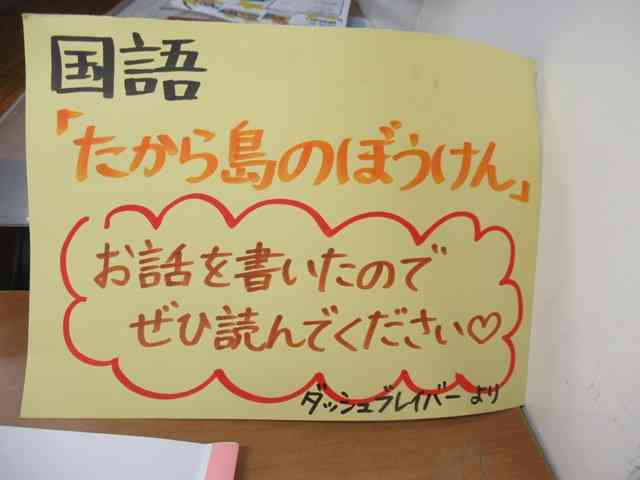 国語
「たから島のぼうけん」
お話を書いたので
ぜひ読んでください♡
ダッシュブレイバーより